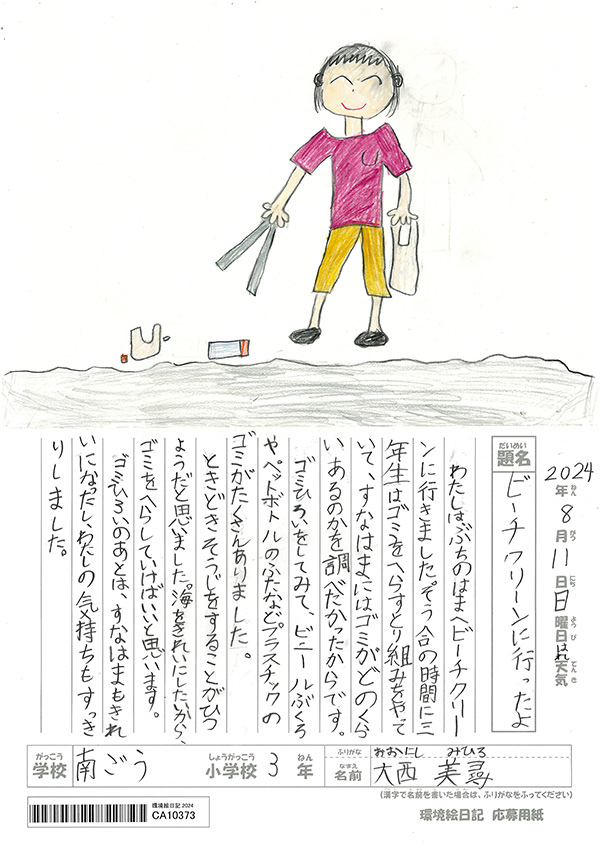 2024年 8月 11日 日曜日 はれ天気
ねん がつ にち ようび てんき
だいめい
題名
ビーチクリーンに行ったよ
わたしは、ぶちのはまへビーチクリー
ンに行きました。そう合の時間に三
年生はゴミをへらすとり組みをやって
いて、すなはまにはゴミがどのくら
いあるのかを調べたかったからです。
ゴミひろいをしてみて、ビニールぶくろ
やペットボトルのふたなどプラスチックの
ゴミがたくさんありました。
ときどきそうじをすることがひつ
ようだと思いました。海をきれいにしたいから、
ゴミをへらしていけばいいと思います。
ゴミひろいのあとは、すなはまもきれ
いになったし、わたしの気持ちもすっき
りしました。
がっこう しょうがっこう ねん ふりがな おおにし みひろ
学校 南ごう 小学校 3年 なまえ 名前 大西 美尋
(漢字で名前を書いた場合は、ふりがなをふってください)
環境絵日記 2024
CA10373
環境絵日記 応募用紙